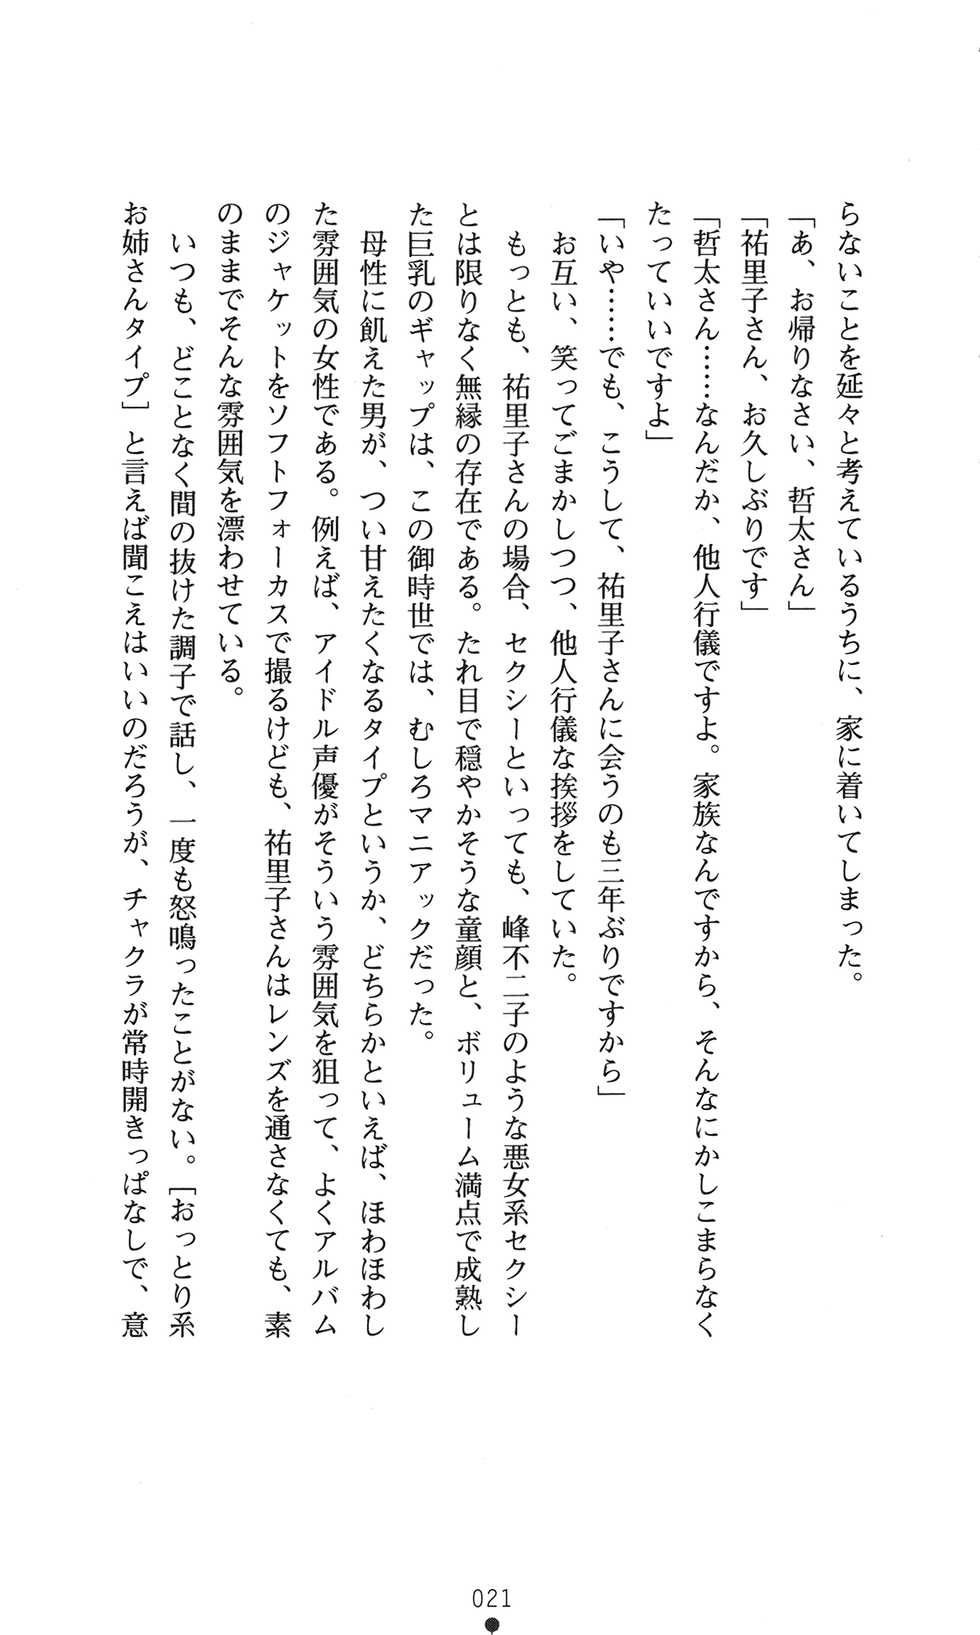 らないことを延々と考えているうちに、家に着いてしまった。
「あ、お帰りなさい、哲太さん」
「祐里子さん、お久しぶりです」
「哲太さん……なんだか、他人行儀ですよ。家族なんですから、そんなにかしこまらなく
たっていいですよ」
「いや……でも、こうして、祐里子さんに会うのも三年ぶりですから」
　お互い、笑ってごまかしつつ、他人行儀な挨拶をしていた。
　もっとも、祐里子さんの場合、セクシーといっても、峰不二子のような悪女系セクシー
とは限りなく無縁の存在である。たれ目で穏やかそうな童顔と、ボリューム満点で成熟し
た巨乳のギャップは、この御時世では、むしろマニアックだった。
　母性に飢えた男が、つい甘えたくなるタイプというか、どちらかといえば、ほわほわし
た雰囲気の女性である。例えば、アイドル声優がそういう雰囲気を狙って、よくアルバム
のジャケットをソフトフォーカスで撮るけども、祐里子さんはレンズを通さなくても、素
のままでそんな雰囲気を漂わせている。
　いつも、どことなく間の抜けた調子で話し、一度も怒鳴ったことがない。［おっとり系
お姉さんタイプ］と言えば聞こえはいいのだろうが、チャクラが常時開きっぱなしで、意
021